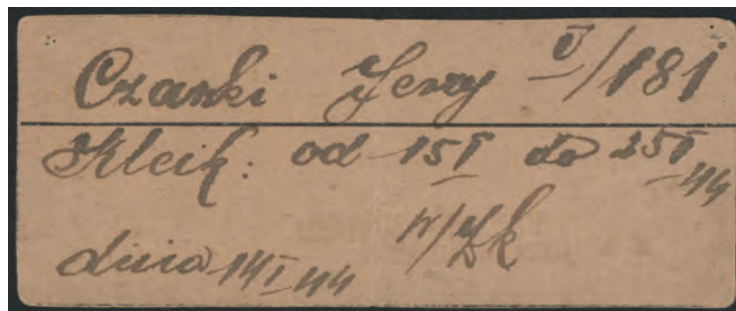 Czarki Jerzy I/181
Kleik: od 15 I do 25 I 44
dnia 14 I 44